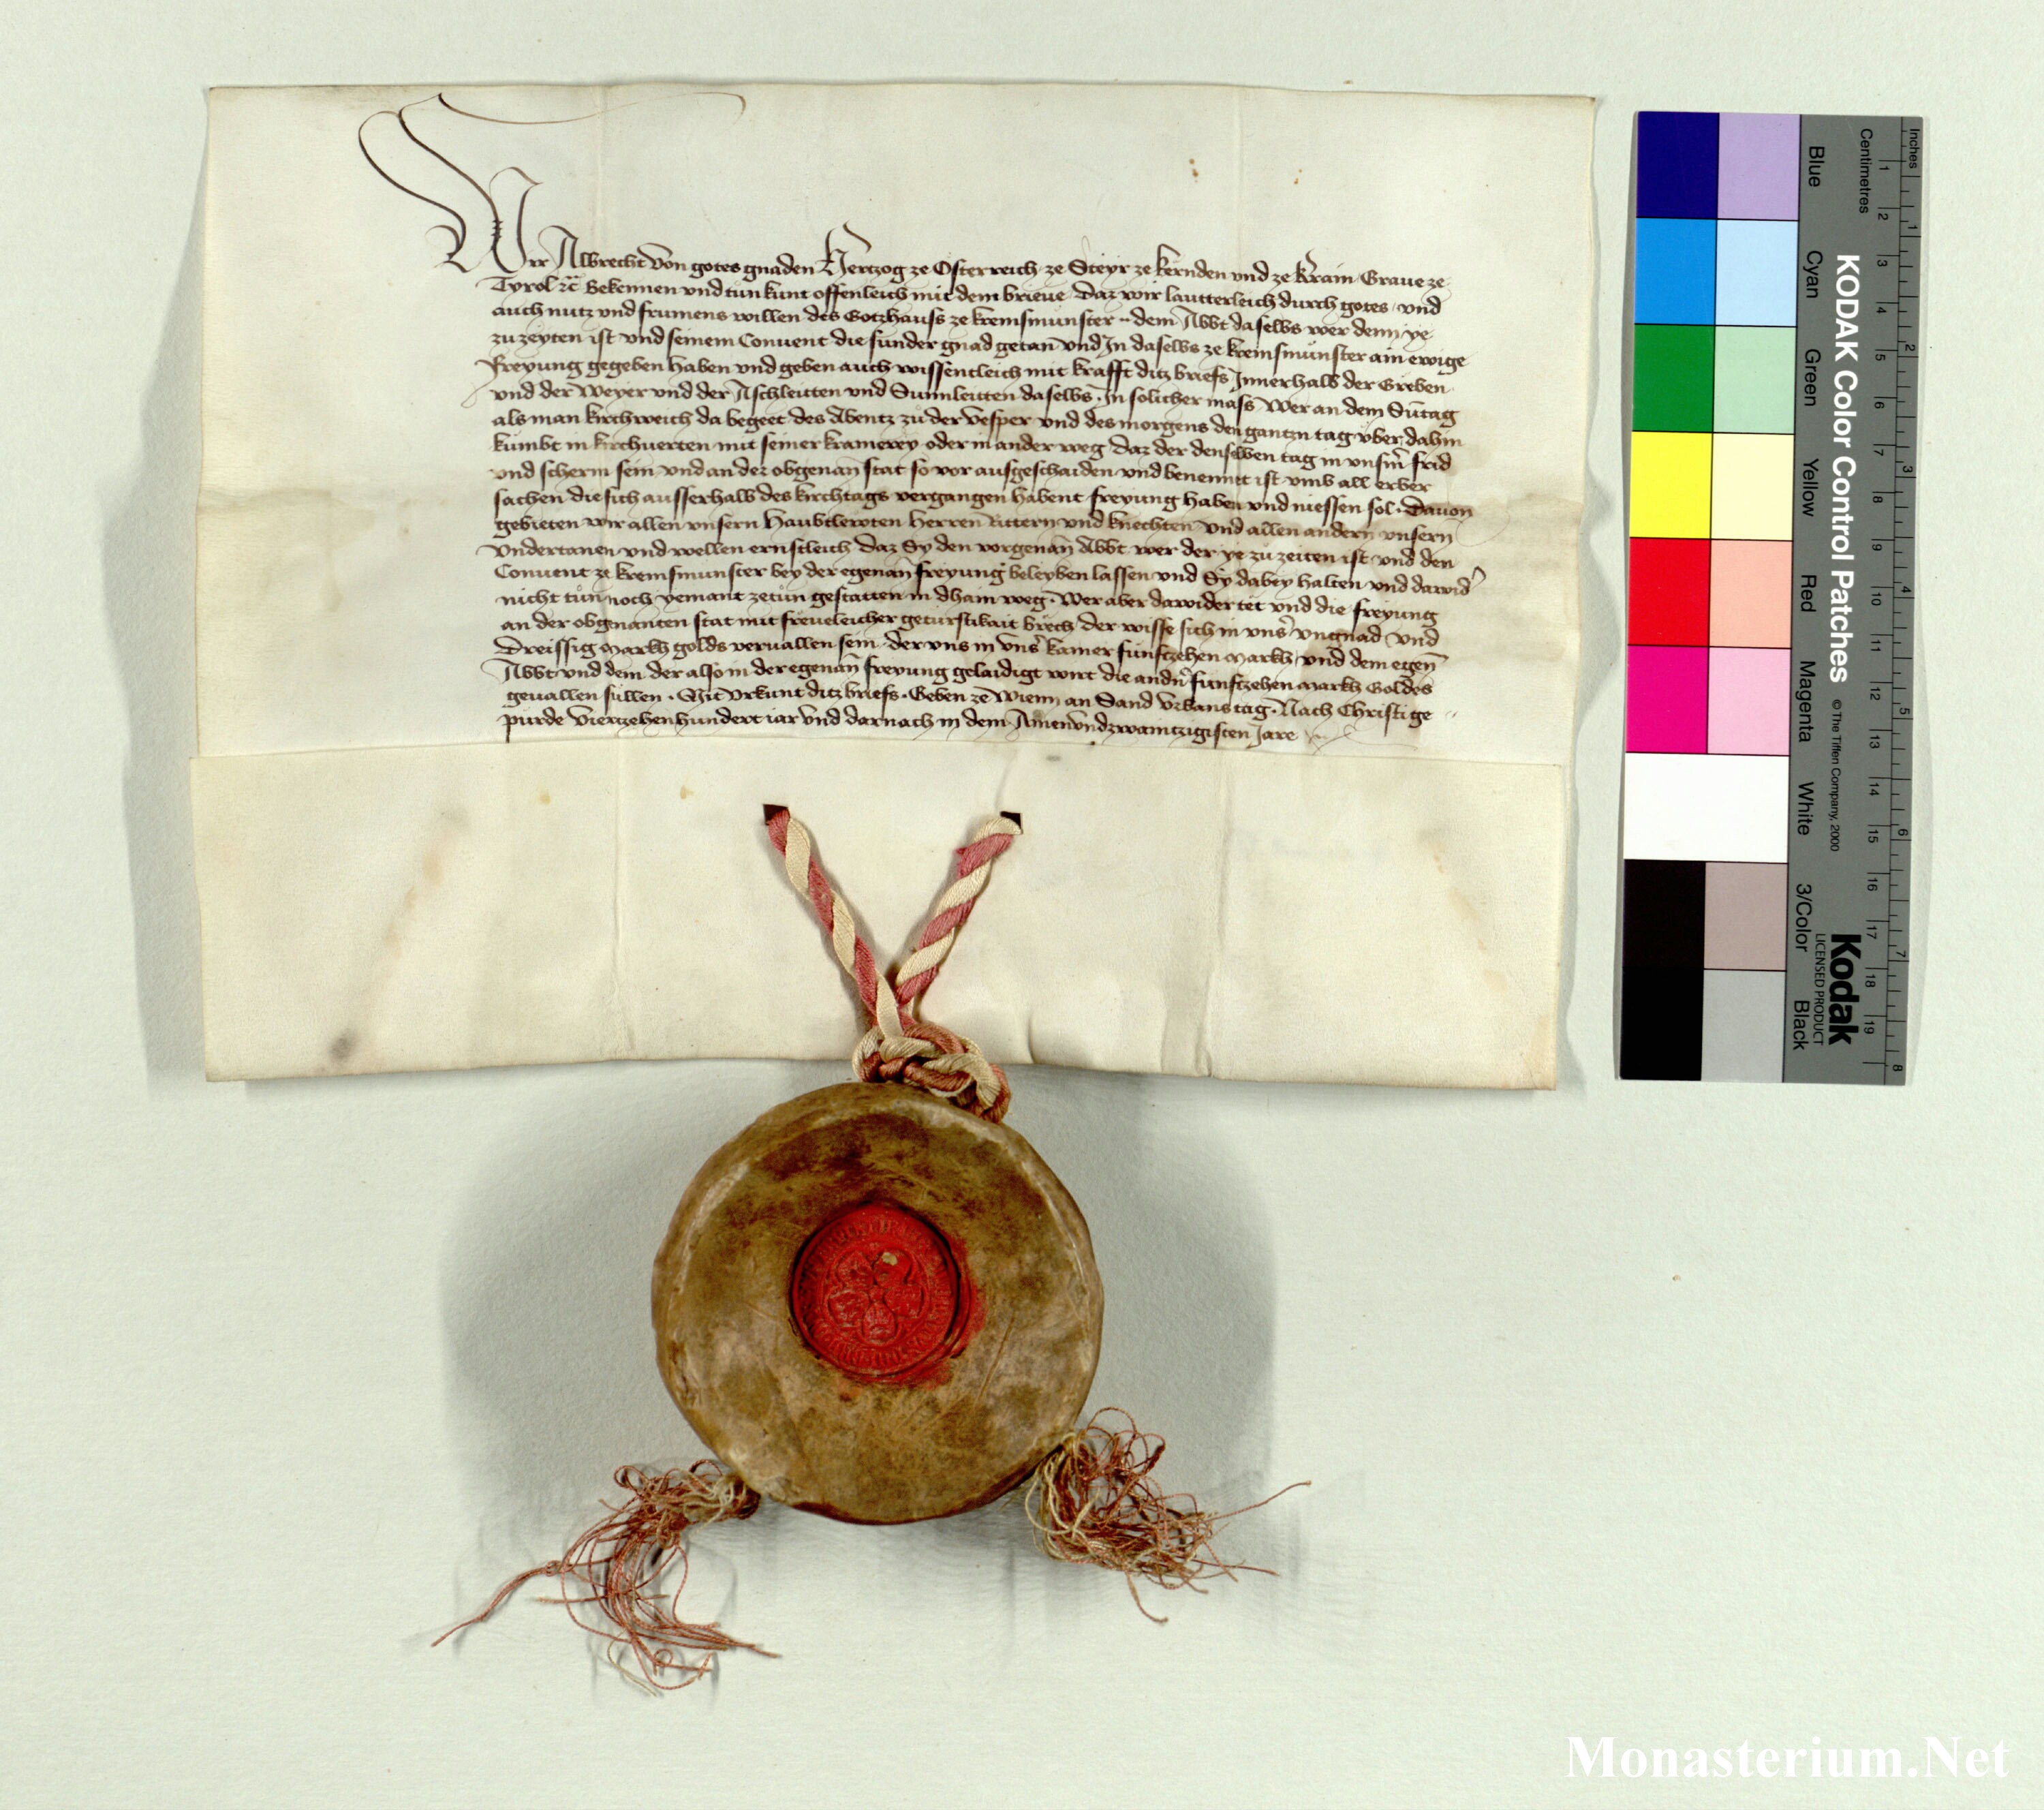 Wir Albrecht von gotes gnaden Hertzog ze Osterreich ze Steyr ze kernden vnd ze krain Graue ze
Tyrol ꝛc̄ Bekennen vnd tůn kunt offenleich mit dem brieue Daz wir lautterleich durch gotes vnd
auch nutz vnd frumens willen des Gotzhauss ze kremsmůnster ·· dem Abbt daselbs wer denn ye
zu zeyten ist vnd seinem Conuent die sunder gnad getan̄ vnd In daselbs ze kremsmůnster ain ewige
Freyung gegeben haben vnd geben auch wissentleich mit krafft ditz briefs Innerhalb der Greben
vnd der Weyer vnd der Aschleitten vnd Sunnleitten daselbs · In solicher mass Wer an dem Sūtag
als man kirchweich da begeet des Abentz zů der Vesper vnd des morgens den gantzn tag vber dahin
kůmbt in kirchuerten mit seiner kramerey oder in ander weg daz der denselben tag in vnsm̄ frid
vnd scherm sein vnd an der obgenan̄ stat so vor ausgeschaiden vnd benennt ist vmb all erber
sachen die sich ausserhalb des kirchtags vergangen habent freyung haben vnd niessen sol · Dauon
gebieten wir allen vnsern Haubtlewten Herren Rittern vnd knechten vnd allen andern vnsern
Vndertanen vnd wellen ernstleich daz Sy den vorgenan̄ Abbt wer der ye zů zeiten ist vnd den
Conuent ze kremsmunster bey der egenan̄ freyung beleyben lassen vnd Sy dabey halten vnd dawid̓
nicht tůn noch yemant ze tůn gestatten in dhain weg · Wer aber dawider tet vnd die freyung
an der obgenanten stat mit freueleicher geturstikait brech der wisse sich in vns̓ vngnad vnd
Dreissig markh golds veruallen sein · der vns in vns̓ kamer fünftzehen markh vnd dem egen̄
Abbt vnd dem der also in der egenan̄ freyung gelaidigt wirt die andn̓ funftzehen markh Goldes
geuallen sullen · Mit Vrkunt ditz briefs · Geben ze Wienn an Sand Vrbans tag · Nach Christi ge
purde Viertzehenhundert iar vnd darnach in dem Ainenvndzwaintzigisten Jare
KODAK Color Control Patches © The Tiffen Company, 2000 Kodak LICENSED PRODUCT
Blue Cyan Green Yellow Red Magenta White 3/Color Black
Inches 1 2 3 4 5 6 7 8
Centimetres 1 2 3 4 5 6 7 8 9 10 11 12 13 14 15 16 17 18 19
Monasterium.Net